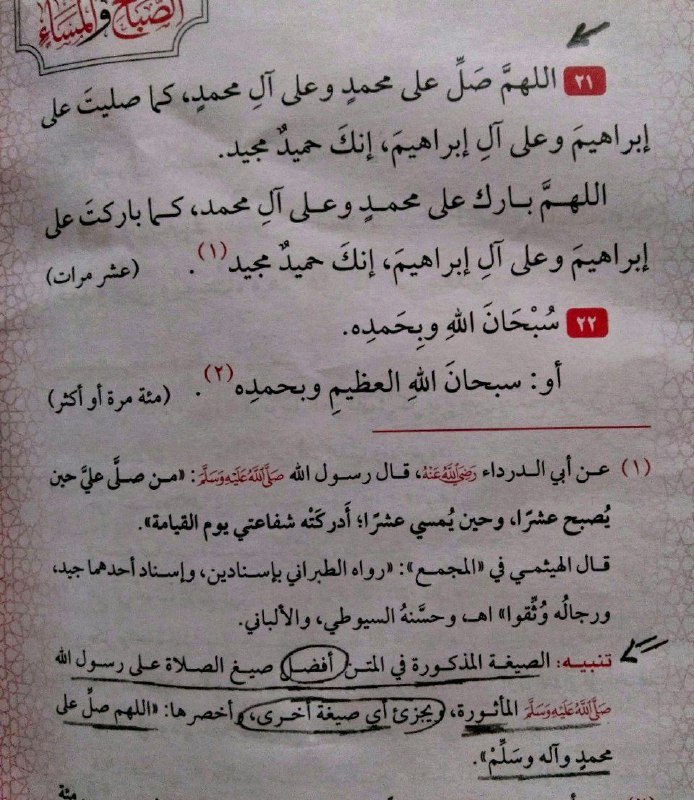 الصباح والمساء
٢١ اللهمَّ صَلِّ على محمدٍ وعلى آلِ محمدٍ، كما صليتَ على
إبراهيمَ وعلى آلِ إبراهيمَ، إنكَ حميدٌ مجيد.
اللهمَّ بارك على محمدٍ وعلى آلِ محمد، كما باركتَ على
إبراهيمَ وعلى آلِ إبراهيمَ، إنكَ حميدٌ مجيد(١). (عشر مرات)
٢٢ سُبْحَانَ اللهِ وبِحَمدِه.
أو: سبحانَ اللهِ العظيمِ وبحمدِه(٢). (مئة مرة أو أكثر)
(١) عن أبي الدرداء رَضِيَ اللَّهُ عَنْهُ، قال رسول الله صَلَّى اللَّهُ عَلَيْهِ وَسَلَّمَ: «من صلَّى عليَّ حين
يُصبح عشرًا، وحين يُمسي عشرًا؛ أدركَتْه شفاعتي يوم القيامة».
قال الهيثمي في «المجمع»: «رواه الطبراني بإسنادين، وإسناد أحدهما جيد،
ورجالُه وُثِّقوا» اهـ، وحسَّنهُ السيوطي، والألباني.
تنبيه: الصيغة المذكورة في المتن أفضل صيغ الصلاة على رسول الله
صَلَّى اللَّهُ عَلَيْهِ وَسَلَّمَ المأثورة، ويجزئ أي صيغة أخرى، وأخصرها: «اللهم صلِّ على
محمدٍ وآله وسَلِّمْ».